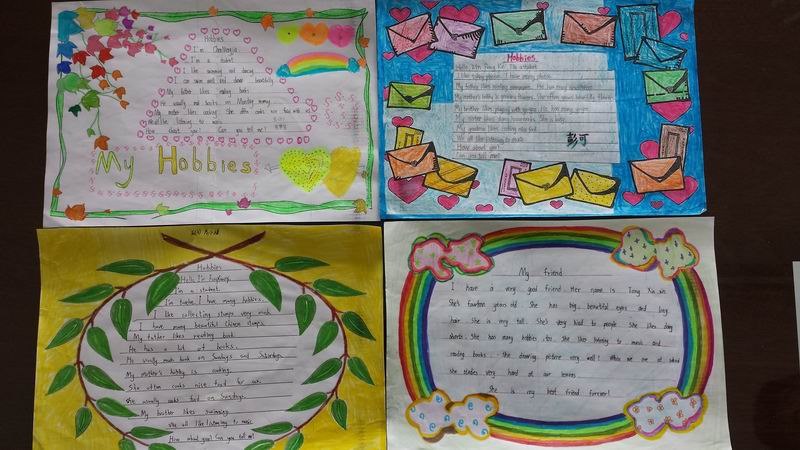 Hobbies
I'm
I'm a student
I like swimming and dancing
I can swim well and dance beautifully
My father likes reading books
He usually read books on
My mother likes cooking. She often cooks nice food with us
We all like listening to music
How about you? Can you tell me?
My Hobbies
Hobbies
I'm a student
I like taking photos. I have many photos.
My father likes
My mother's hobby is growing flowers. She often grows beautiful flowers
My brother likes playing with
My sister likes doing housework. She is busy.
My grandma likes cooking nice food.
We all like listening to music
How about you?
Can you tell me?
彭可
Hobbies
Hello, I'm
I'm a student.
I'm twelve. I have many hobbies.
I like collecting stamps very much.
I have many beautiful Chinese stamps.
My father likes reading book.
He has a lot of books.
He usually reads book on Sundays and Saturdays.
My mother's hobby is cooking.
She often cooks nice food for us.
She usually cooks food on Sundays.
My brother likes swimming.
We all like listening to music.
How about you? Can you tell me?
My friend
I have a very good friend. Her name is Tong Xin
She's fourteen years old. She has big beautiful eyes and long
hair. She is very tall. She's very kind to people. She likes doing
sports. She has many hobbies, too. She likes listening to music and
reading books. she drawing picture very well! When we are at school
she studies very hard at our lessons.
She is my best friend forever!